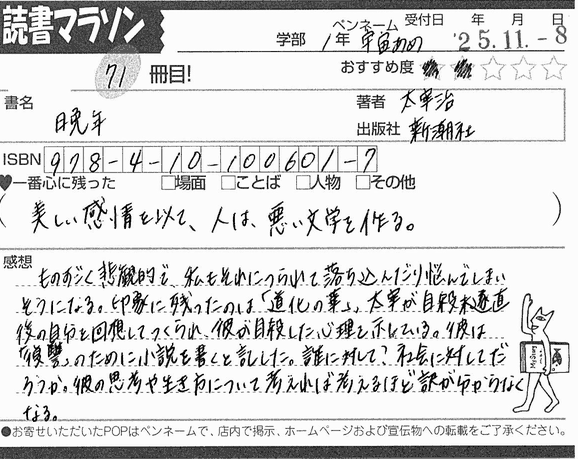 読書マラソン
学部 1年 ペンネーム 宇宙あめ 受付日 年 月 日 '25.11.-8
71 冊目! おすすめ度 ★★☆☆☆
書名 晩年 著者 太宰治
出版社 新潮社
ISBN 978-4-10-100601-7
♥一番心に残った □場面 □ことば □人物 □その他
(美しい感情を以て、人は、悪い文学を作る。)
感想
ものすごく悲観的で、私もそれにつられて落ち込んだり悩んでしまい
そうになる。印象に残ったのは「道化の華」。太宰が自殺未遂直
後の自分を回想してつくられ、彼が自殺した心理を示している。彼は
「復讐」のために小説を書くと記した。誰に対して?社会に対してだ
ろうか。彼の思考や生き方について考えれば考えるほど訳が分からなく
なる。
●お寄せいただいたPOPはペンネームで、店内で掲示、ホームページおよび宣伝物への転載をご了承ください。